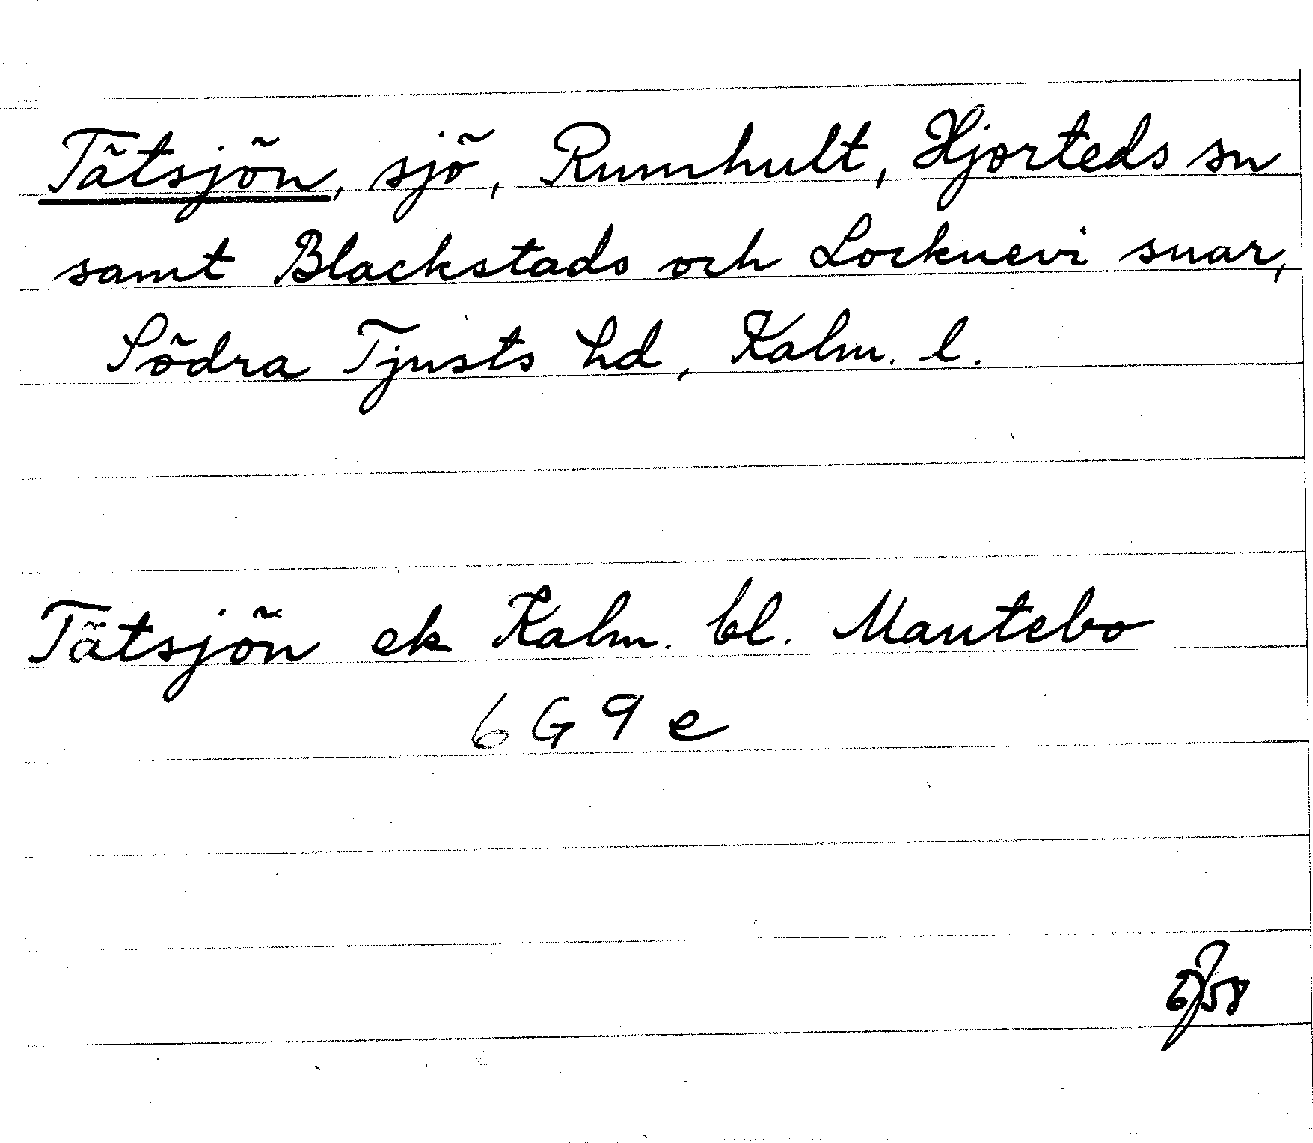 Tätsjön, sjö, Rumhult, Hjorteds sn
samt Blackstads och Locknevi snar,
Södra Tjusts hd, Kalm. l.
Tätsjön ek Kalm. bl. Mantebo
6 G 9 e